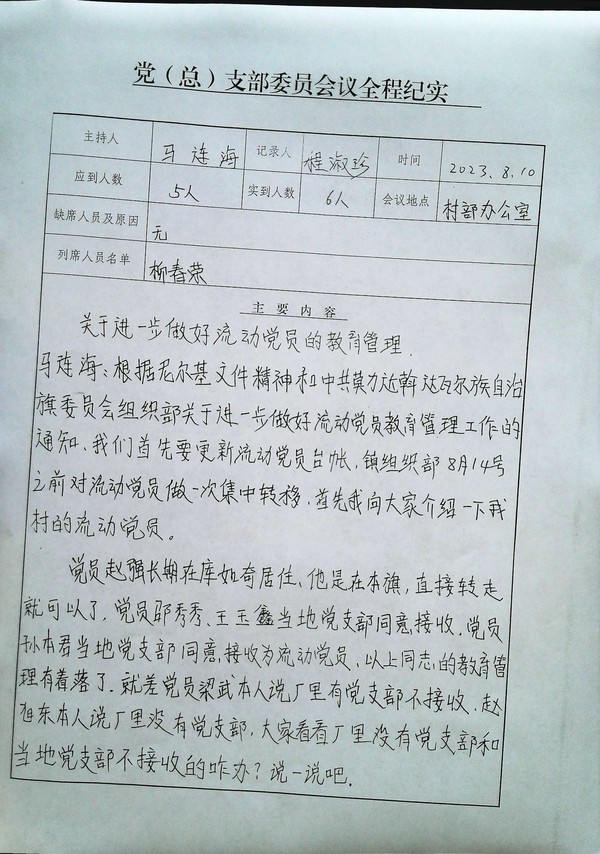 党（总）支部委员会议全程纪实
主持人 马连海 记录人 程淑珍 时间 2023.8.10
应到人数 5人 实到人数 6人 会议地点 村部办公室
缺席人员及原因 无
列席人员名单 柳春荣
主要内容
关于进一步做好流动党员的教育管理.
马连海：根据尼尔基文件精神和中共莫力达斡达瓦尔族自治
旗委员会组织部关于进一步做好流动党员教育管理工作的
通知、我们首先要更新流动党员台帐，镇组织部8月14号
之前对流动党员做一次集中转移.首先我向大家介绍一下我
村的流动党员。
党员赵强长期在库如奇居住、他是在本旗，直接转走
就可以了.党员邬秀秀、王玉鑫当地党支部同意接收.党员
孙本君当地党支部同意，接收为流动党员、以上同志的教育管
理有着落了.就差党员梁武本人说厂里有党支部不接收.赵
旭东本人说厂里没有党支部，大家看看厂里没有党支部和
当地党支部不接收的咋办？说一说吧.